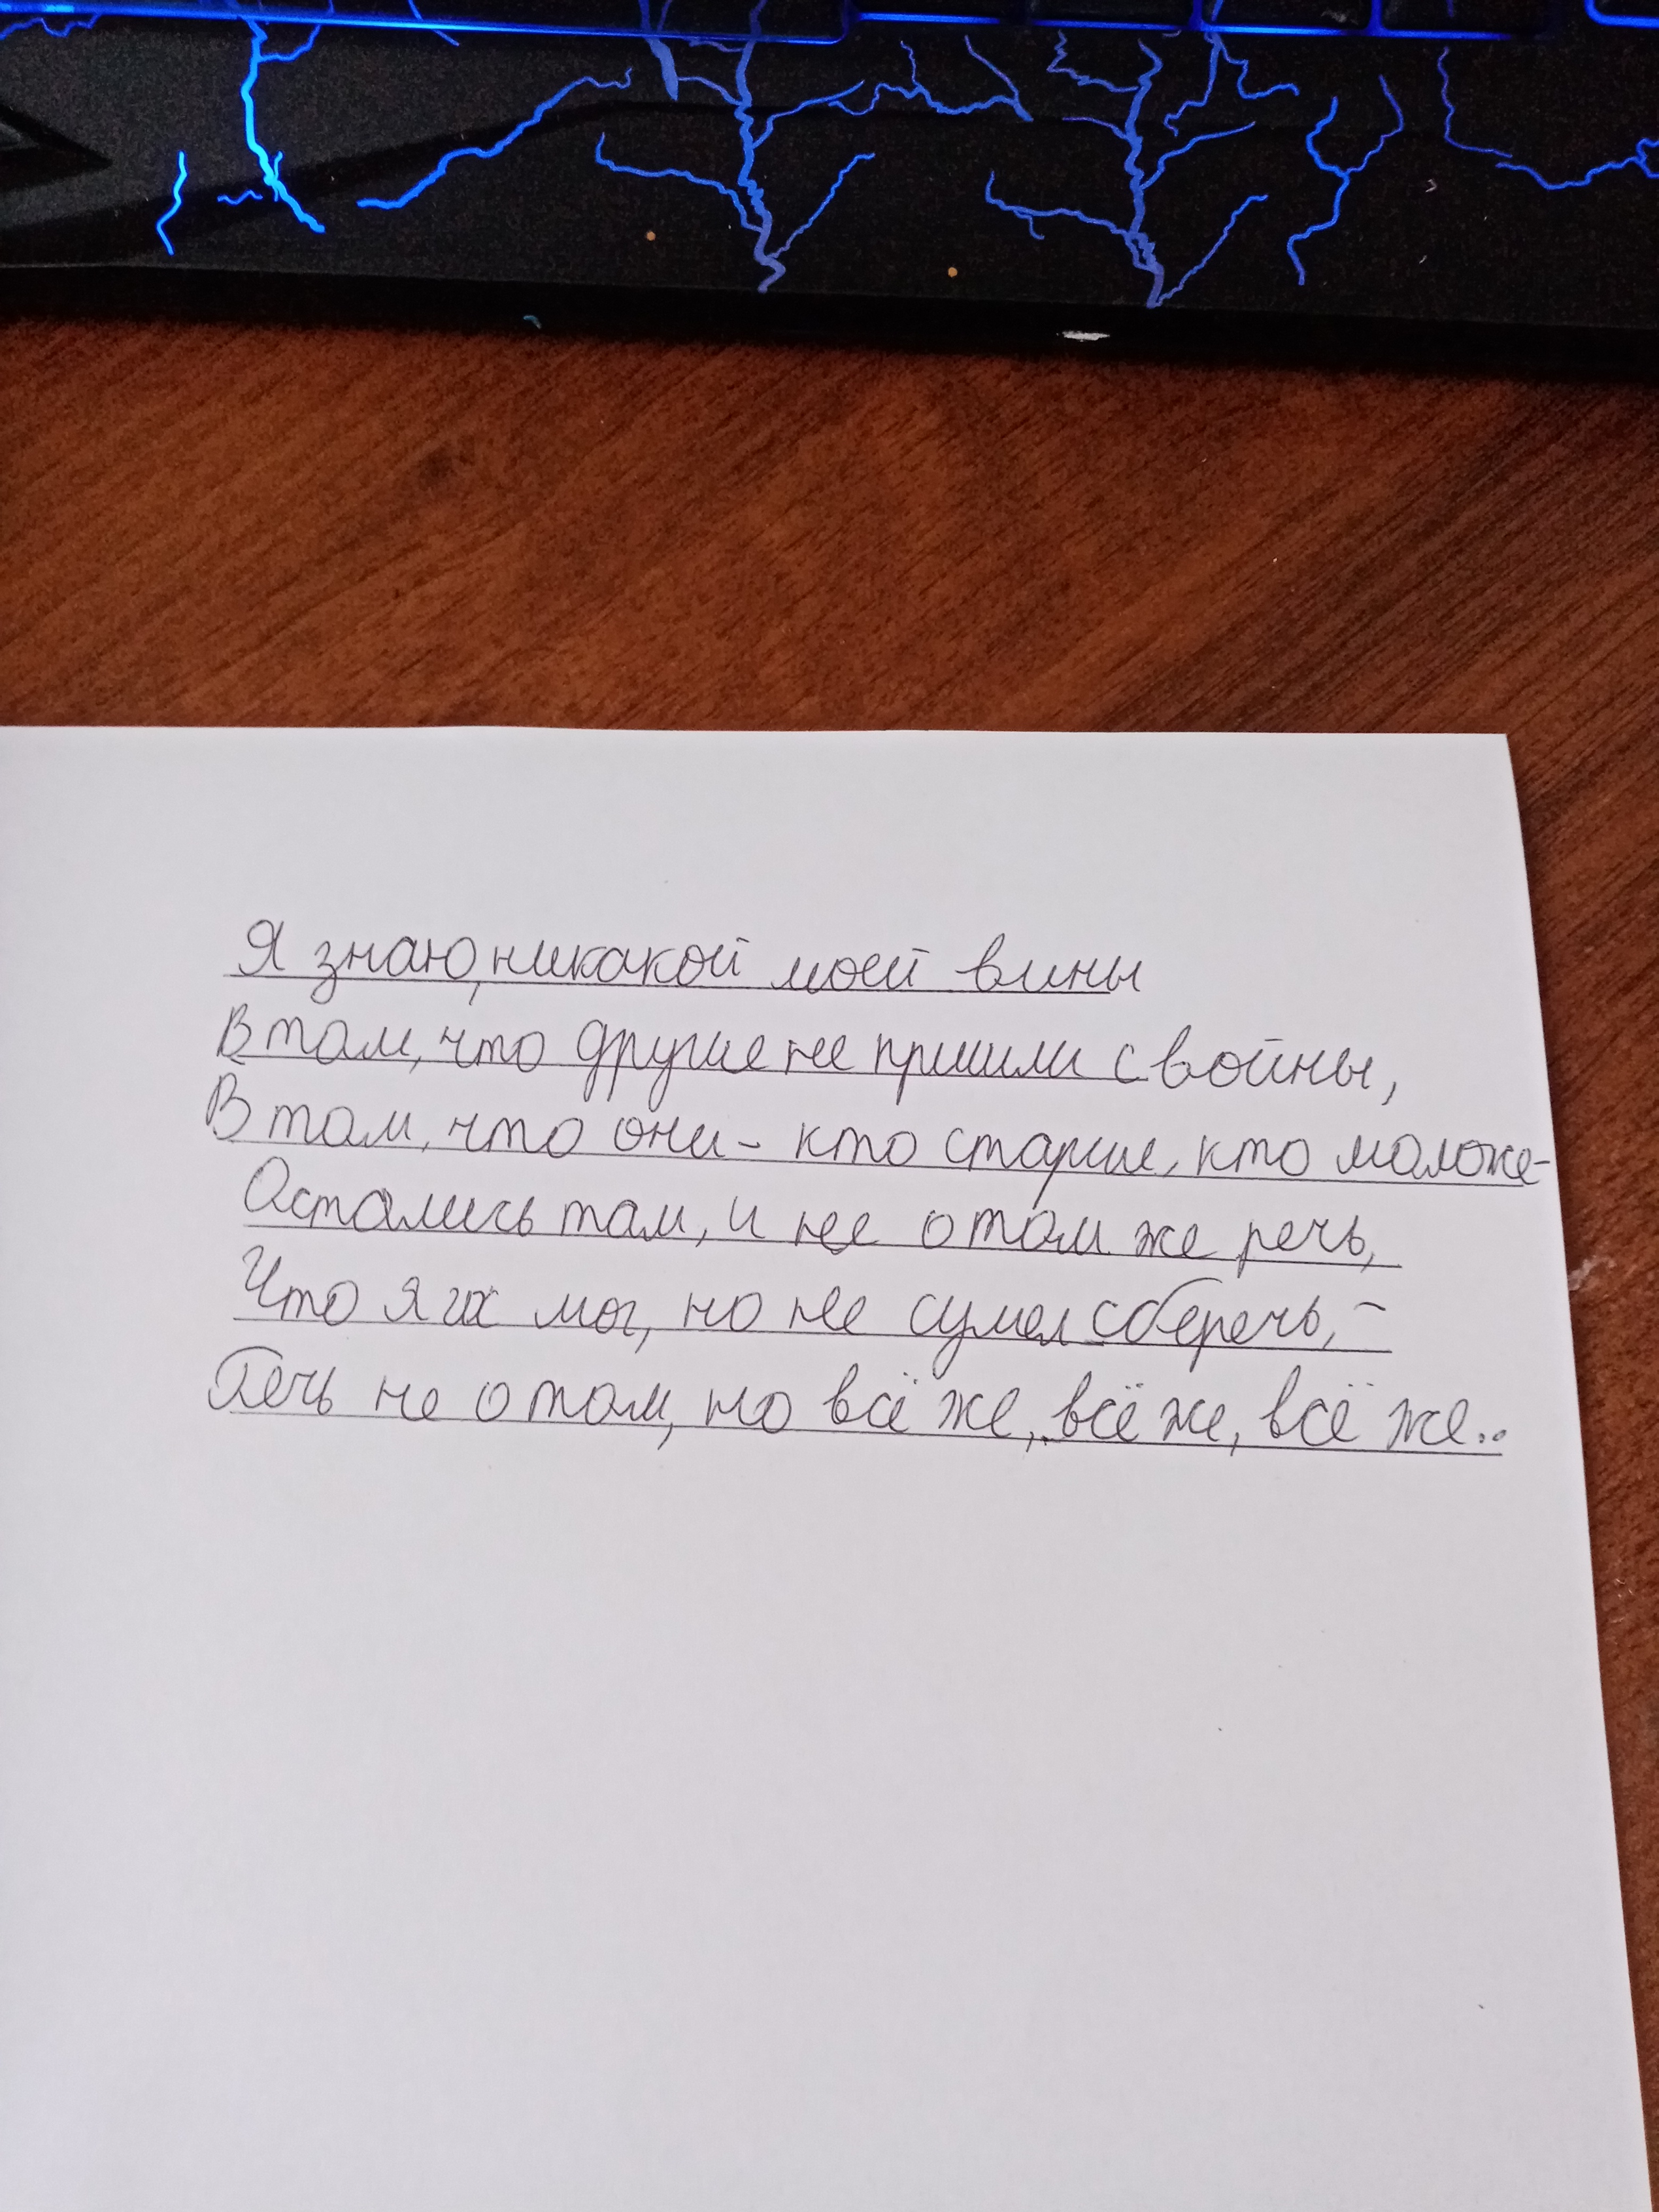 Я знаю, никакой моей вины
В том, что другие не пришли с войны,
В том, что они - кто старше, кто моложе-
Остались там, и не о том же речь,
Что я их мог, но не сумел сберечь, -
Речь не о том, но всё же, всё же, всё же..